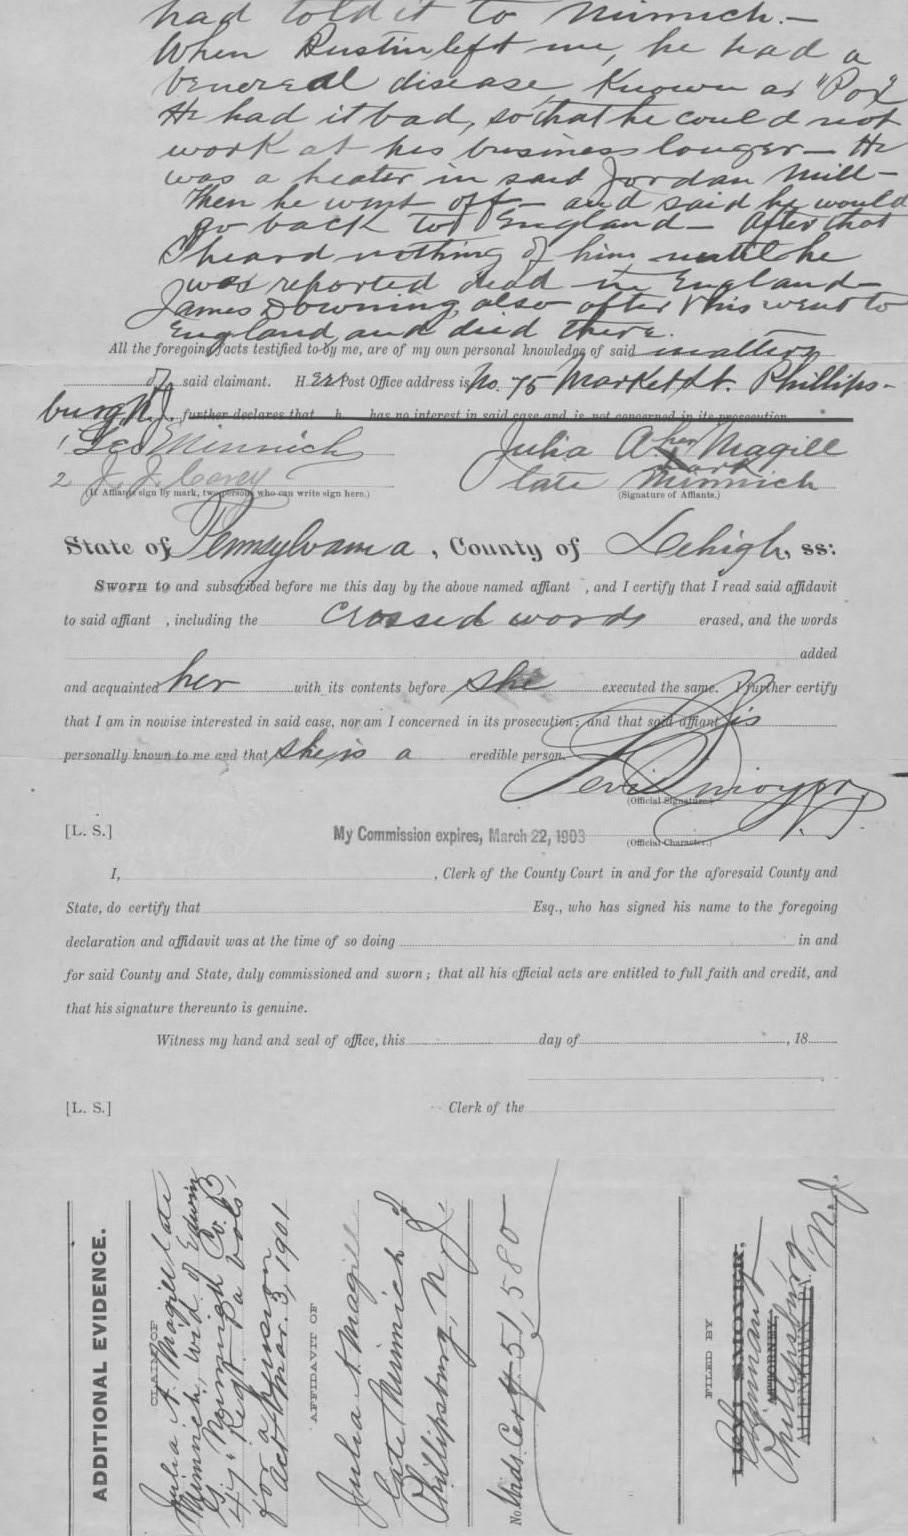 had told it to Minnich.—
When Bustin left me, he had a
venereal disease, Known as "Pox"
He had it bad, so that he could not
work at his business longer— He
was a heater in said Jordan Mill—
Then he went off— and said he would
go back to England— After that
I heard nothing of him until he
was reported dead in England—
James Downing, also after this went to
England, and died there.
All the foregoing facts testified to by me, are of my own personal knowledge of said matters
of said claimant. Her Post Office address is No. 75 Market St. Phillips-
burg N.J. further declares that h has no interest in said case and is not concerned in its prosecution
1 Leo Minnich
2 J. J. Carey
(If Affiants sign by mark, two persons who can write sign here.)
Julia A her Magill
mark
late Minnich
(Signature of Affiants.)
State of Pennsylvania, County of Lehigh, ss:
Sworn to and subscribed before me this day by the above named affiant , and I certify that I read said affidavit
to said affiant , including the crossed words erased, and the words
added
and acquainted her with its contents before she executed the same. I further certify
that I am in nowise interested in said case, nor am I concerned in its prosecution; and that said affiant is
personally known to me and that she is a credible person.
Levi Smoyer,
(Official Signature.)
J.P.
(Official Character.)
[L. S.] My Commission expires, March 22, 1903
I, , Clerk of the County Court in and for the aforesaid County and
State, do certify that Esq., who has signed his name to the foregoing
declaration and affidavit was at the time of so doing in and
for said County and State, duly commissioned and sworn; that all his official acts are entitled to full faith and credit, and
that his signature thereunto is genuine.
Witness my hand and seal of office, this day of , 18
[L. S.] Clerk of the
ADDITIONAL EVIDENCE.
CLAIM OF
Julia A. Magill late
Minnich, wid of Edwin
G. Minnich Co. B
47. Regt Pa Vols,
for a pension
act Mar. 3, 1901
AFFIDAVIT OF
Julia A Magill
late Minnich of
Phillipsburg, N. J.
No. Wids. Cert 51,580
FILED BY
LEVI SMOYER,
Claimant
ATTORNEY,
Phillipsburg, N.J.
ALLENTOWN, PA.